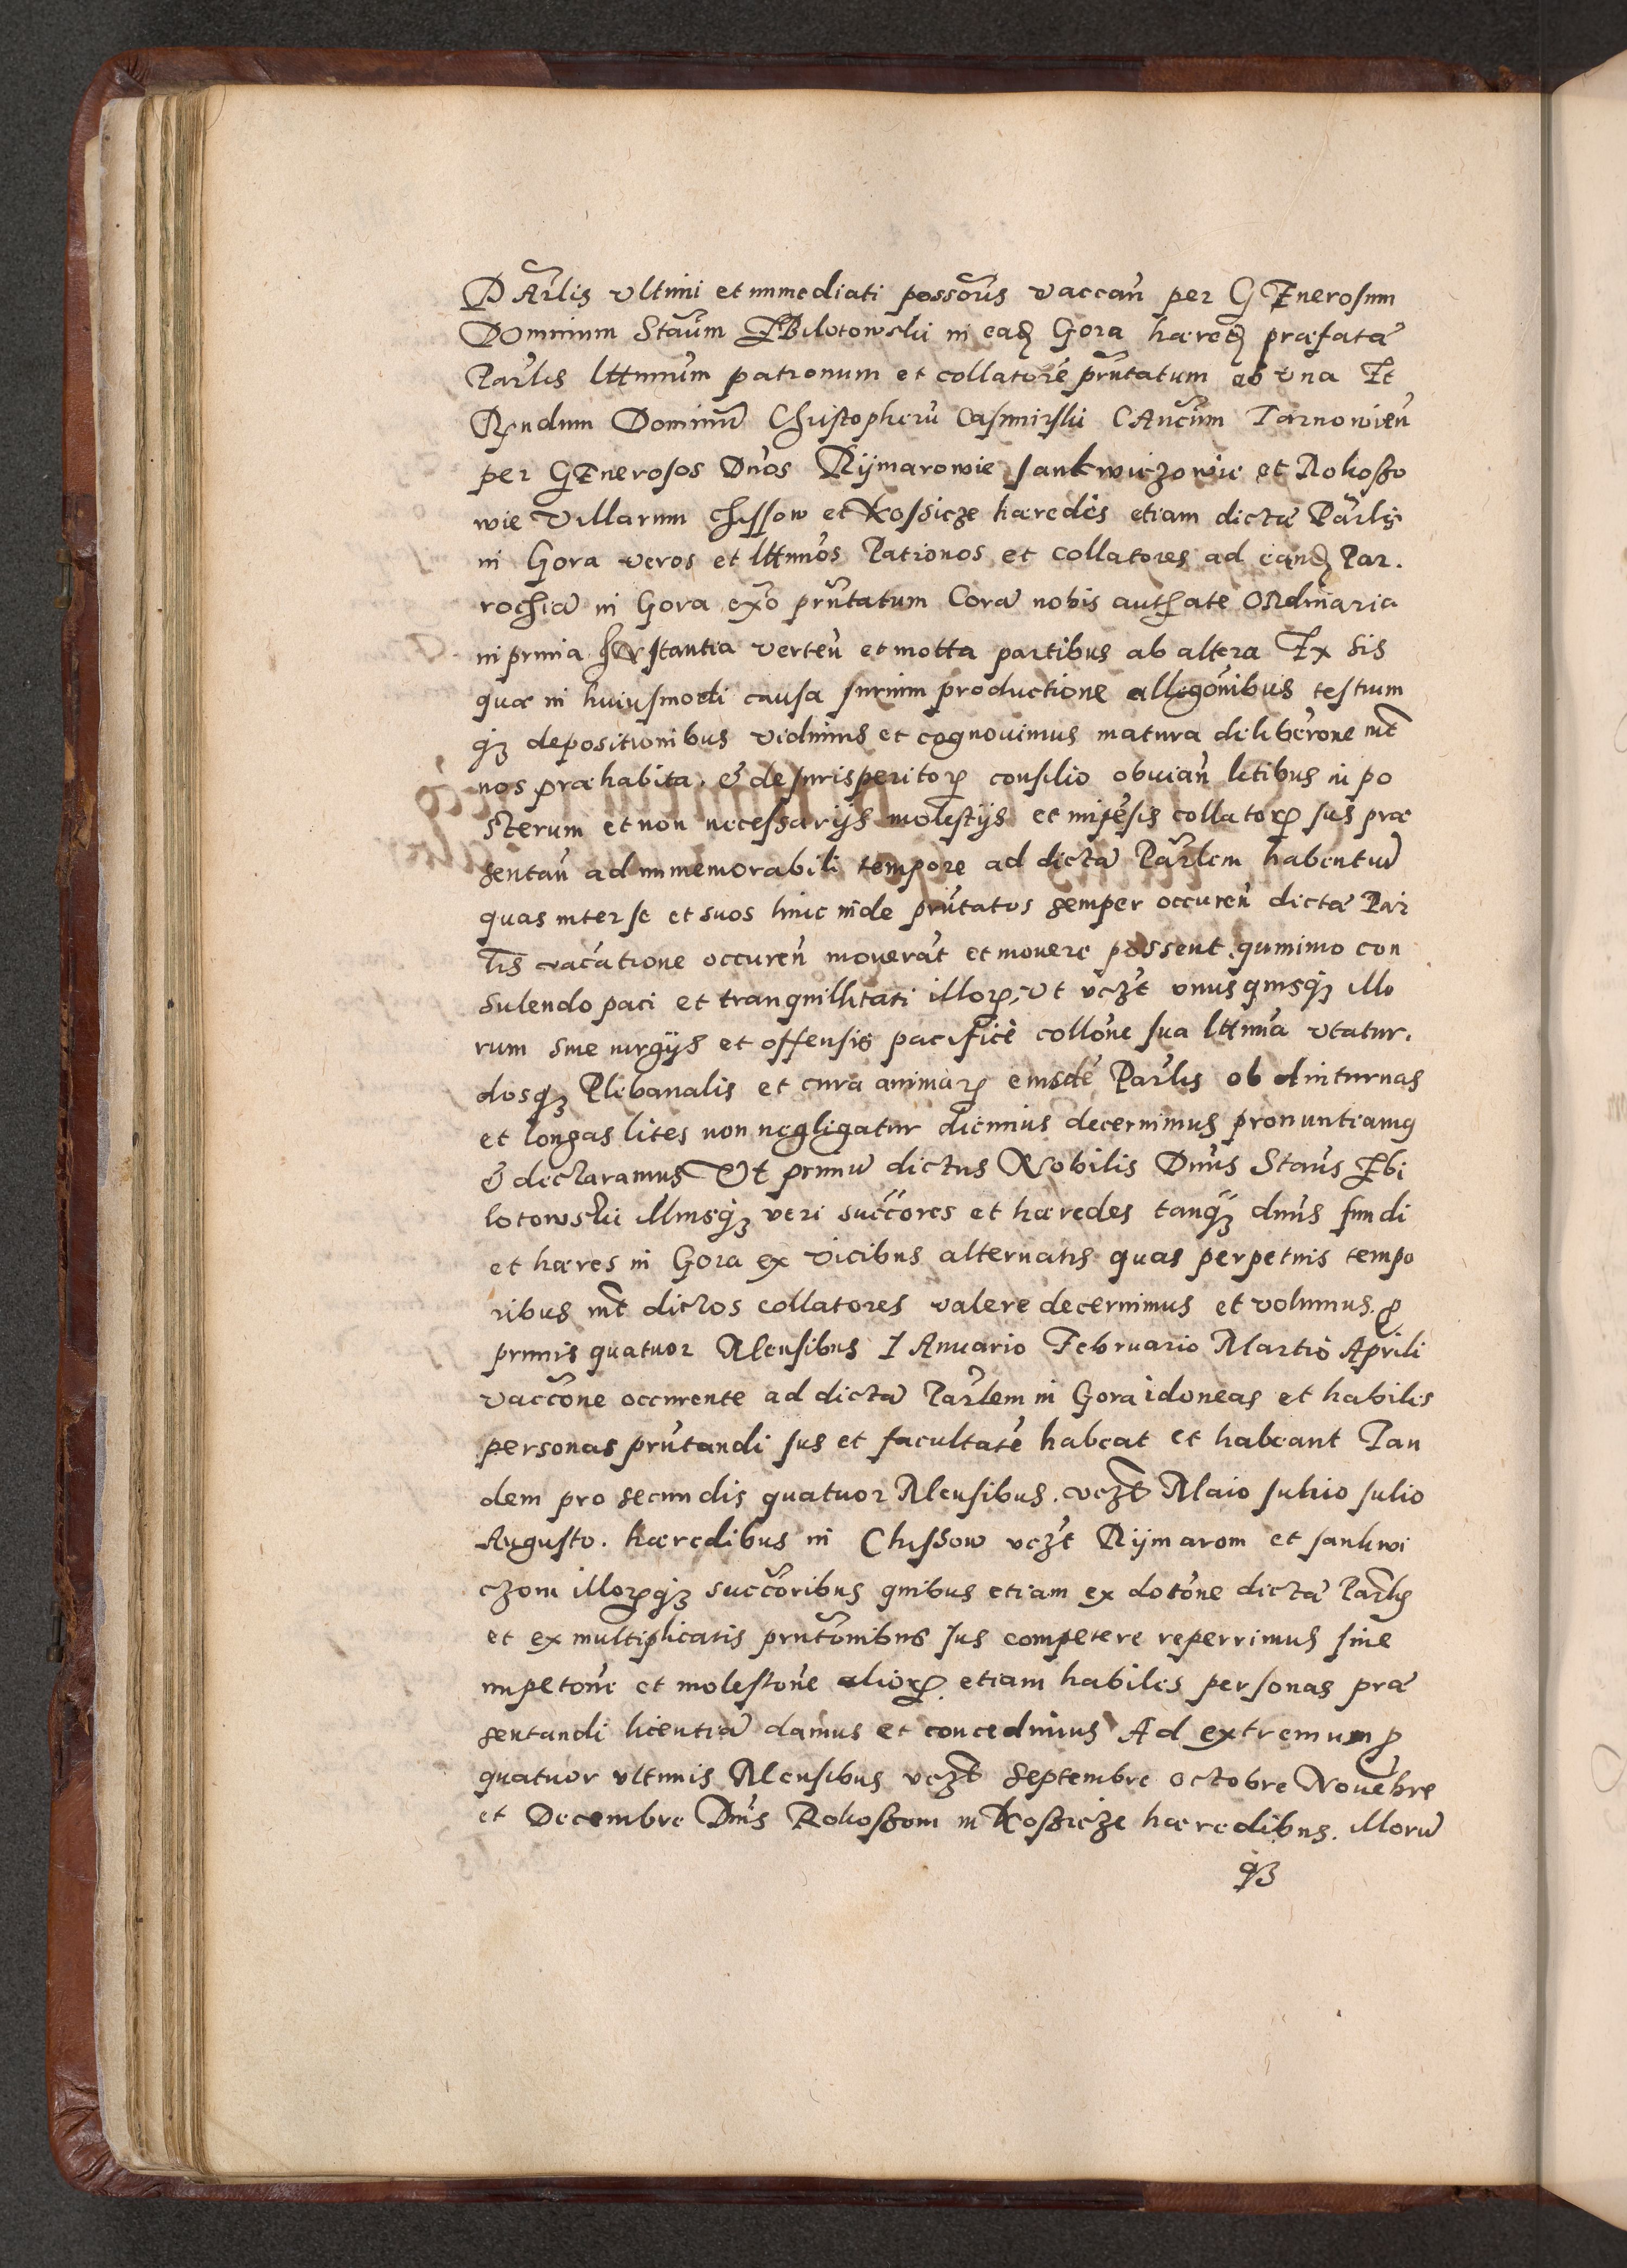 PArlis vltimi et immediati possoris vaccan per GEnerosum
DOminum Staum EBilotowski in eadę Gora hæredę præfatæ
Parlis lttimum patronum et collatorē prntatum ab vna Et
Rɲdum Dominū Christopherū Casimirski CAncum Tarnowień
per GEnerosos Dnos Rijmarowie Jankwiczowie et Rokosßo
wie Villarum Chissow et Kossicze hæredes etiam dictæ Parlis
in Gora veros et lttimos Patronos et collatores ad eandę Par.
rochiā in Gora exō prntatum Corā nobis authate ORdinaria
in prima Instantia verteń et motta partibus ab altera Ex his
quæ in huiusmodi causa Jurium productione allegonibus testium
qȝ depositionibus vidimus et cognouimus matura deliberone int
nos præhabita. & de Jurisperitorꝝ consilio obuiań litibus in po
sterum et non necessarijs molestijs et impēsis collatorꝝ Jus præ
sentań ad immemorabili tempore ad dictā Parlem habentiū
quas inter se et suos hinc inde prntatos semper occureń dictæ Par
lis vacatione occureń mouerāt et mouere possent quinimo con
sulendo paci et tranquillitati illorꝝ, vt vczt vnusquisqȝ illo
rum sine iurgijs et offensis pacificè collone sua lttima vtatur.
dosqȝ Plebanalis et cura animarꝝ eiusdē Parlis ob diuturnas
et longas lites non negligatur dicimus decernimus pronuntiamꝰ
& declaramus Vt primū dictus Nobilis Dnus Staus Ebi
lotowskii illiusqȝ veri succores et hæredes tanqȝ dnus fundi
et hæres in Gora ex vicibus alternatis quas perpetuis tempo
ribus int dictos collatores valere decernimus et volumus. ꝓ
primis quatuor Mensibus IAnuario Februario Martio Aprili
vaccone occurente ad dictā Parlem in Gora idoneas et habiles
personas prntandi Jus et facultatē habeat et habeant Tan
dem pro secundis quatuor Mensibus. vczt Maio Junio Julio
Augusto. hæredibus in Chissow vczt Rijmarom et Jankwi
czom illorꝝqȝ succoribus quibus etiam ex dotone dictæ Parlis
et ex multiplicatis prntonibus Jus competere reperrimus sine
impetone et molestone aliorꝝ etiam habiles personas præ
sentandi licentiā damus et concedimus Ad extremum ꝓ
quatuor vltimis Mensibus vczt Septembre Octobre Nouēbre
et Decembre Dnis Rokosßom in Kosßicze hæredibus. illorū
qȝ